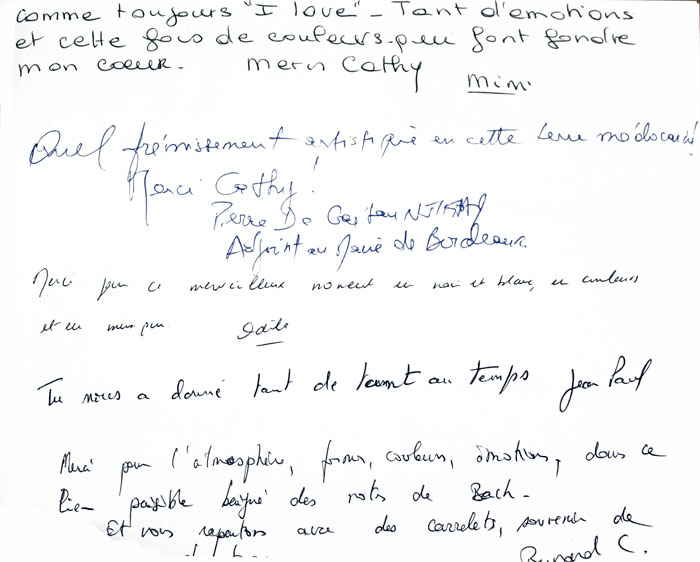 comme toujours "I love" - Tant d'émotions
et cette fois de couleurs qui font fondre
mon coeur. Merci Cathy
Mimi
Quel frémissement artistique en cette terre médocaine!
Merci Cathy!
Pierre De Gaétan
Adjoint au Maire de Bordeaux.
Merci pour ce merveilleux moment en noir et blanc, en couleurs
et en
Odile
Tu nous a donné tant de au temps Jean Paul
Merci pour l'atmosphère, formes, couleurs, émotions, dans ce
lieu paisible baigné des notes de Bach -
Et vous repartons avec des carrelets, souvenir de
Bernard C.